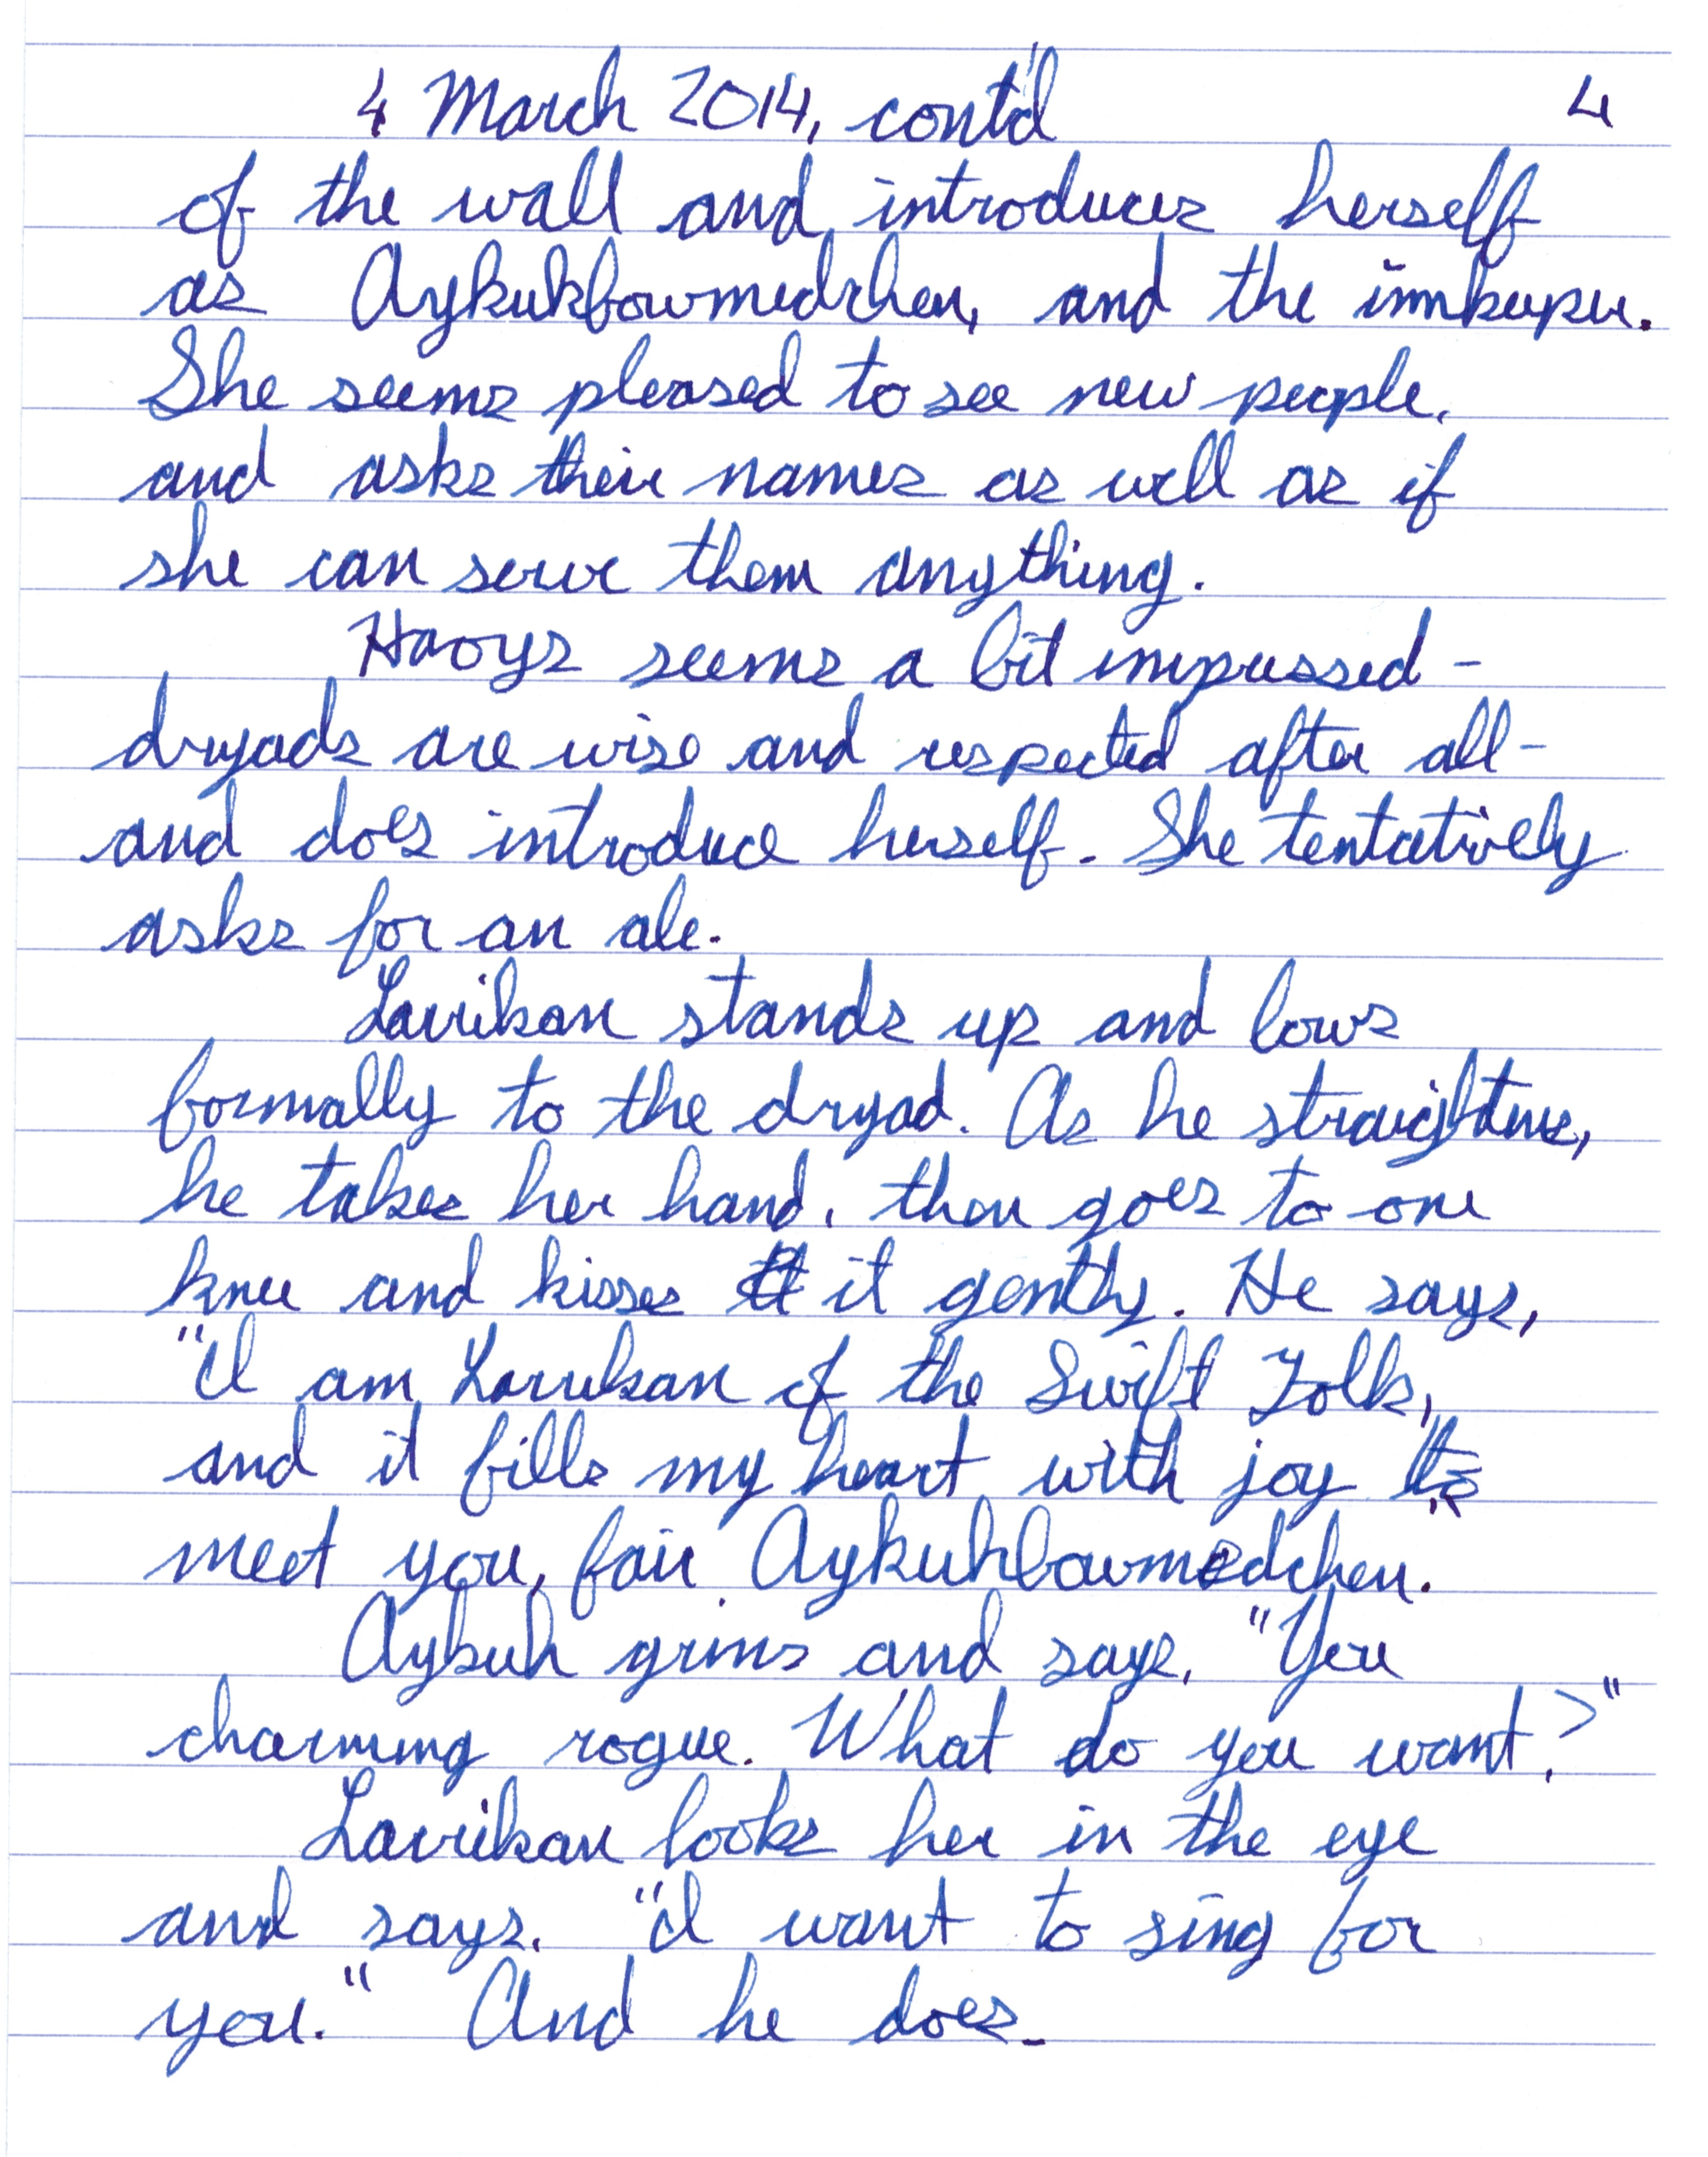 4 March 2014, cont'd 4
of the wall and introduces herself
as Aykukbowmedchen, and the innkeeper.
She seems pleased to see new people,
and asks their names as well as if
she can serve them anything.
Haoys seems a bit impressed -
dryads are wise and respected after all -
and does introduce herself. She tentatively
asks for an ale.
Lavrikan stands up and bows
formally to the dryad. As he straightens,
he takes her hand, then goes to one
knee and kisses it gently. He says,
"I am Lavrikan of the Swift Folk,
and it fills my heart with joy to
meet you, fair Aykuhbowmedchen."
Aykuh grins and says, "You
charming rogue. What do you want?"
Lavrikan looks her in the eye
and says, "I want to sing for
you." And he does.